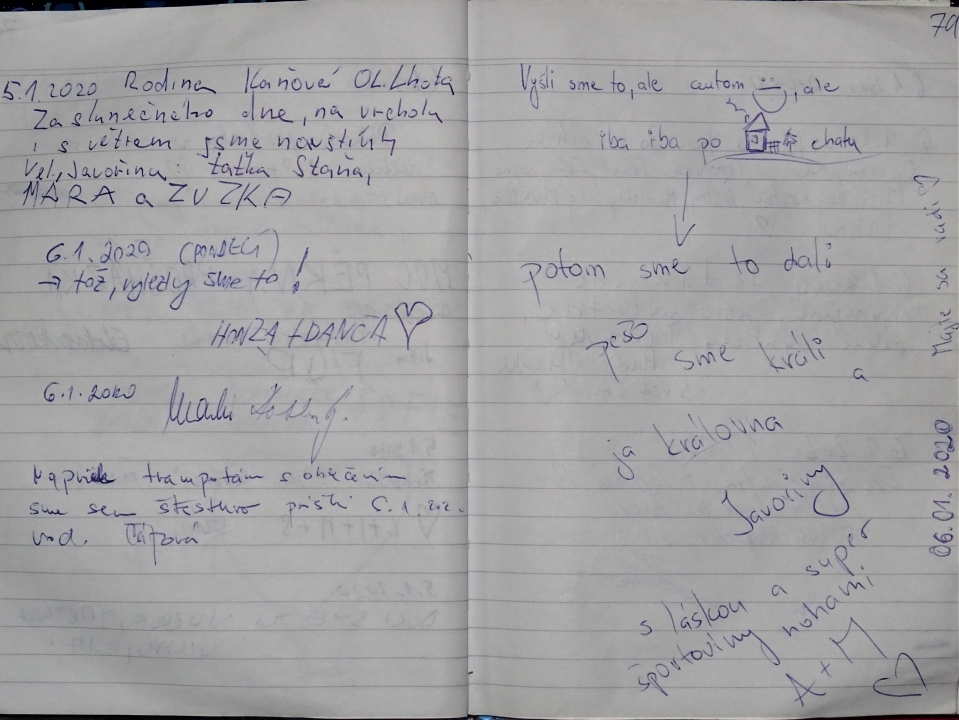 5.1.2020 Rodina Kaňové OL. Lhota
Za slunečného dne, na vrcholu
i s větrem jsme navštívili
Vel. Javořinu: taťka Stáňa,
MÁRA a ZUZKA
6.1.2020 (PONDĚLÍ)
→ tož, vyledly sme to!
HONZA + DANČA
6.1.2020
trampotám s oblečením
sme sem šťastně prišli 6.1.202.
79
Vyšli sme to, ale autom, ale
iba iba po chatu
potom sme to dali
pešo sme králi
a
ja královna
Javořiny
s láskou a super
športoviny nohami
A + M
06.01.2020 Májte sa radi